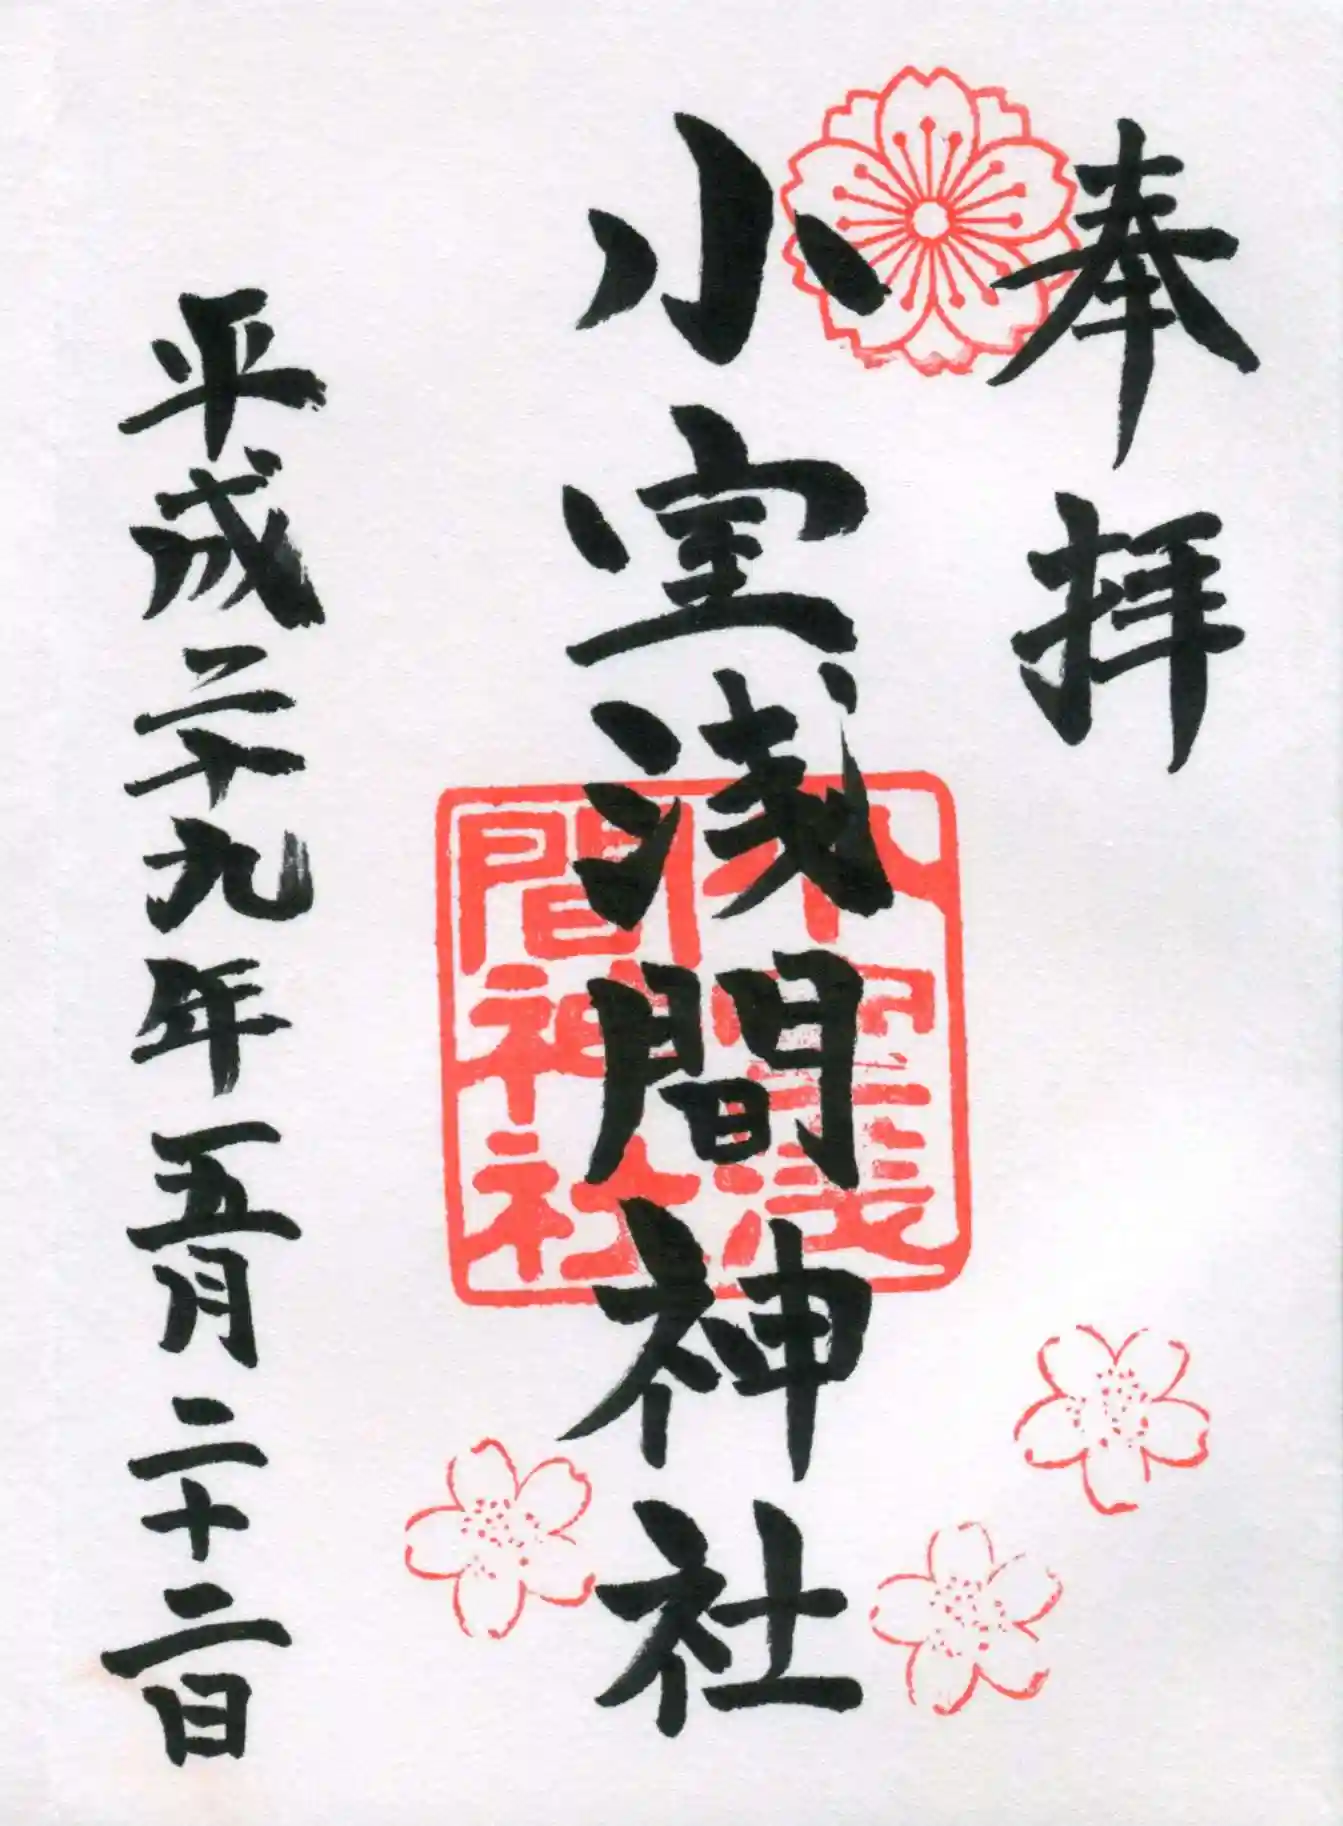 奉拝
小室浅間神社
小室浅
間神社
平成二十九年五月二十二日